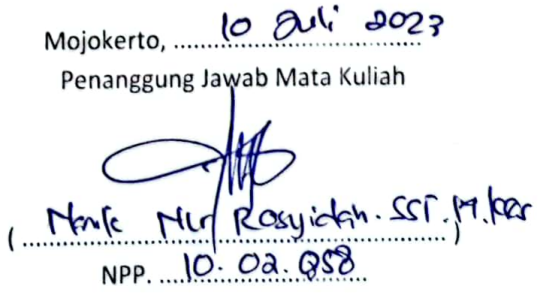 Mojokerto, 10 Juli 2023
Penanggung Jawab Mata Kuliah
( Nur Rosyidah. SST. M.Kes )
NPP. 10.02.058